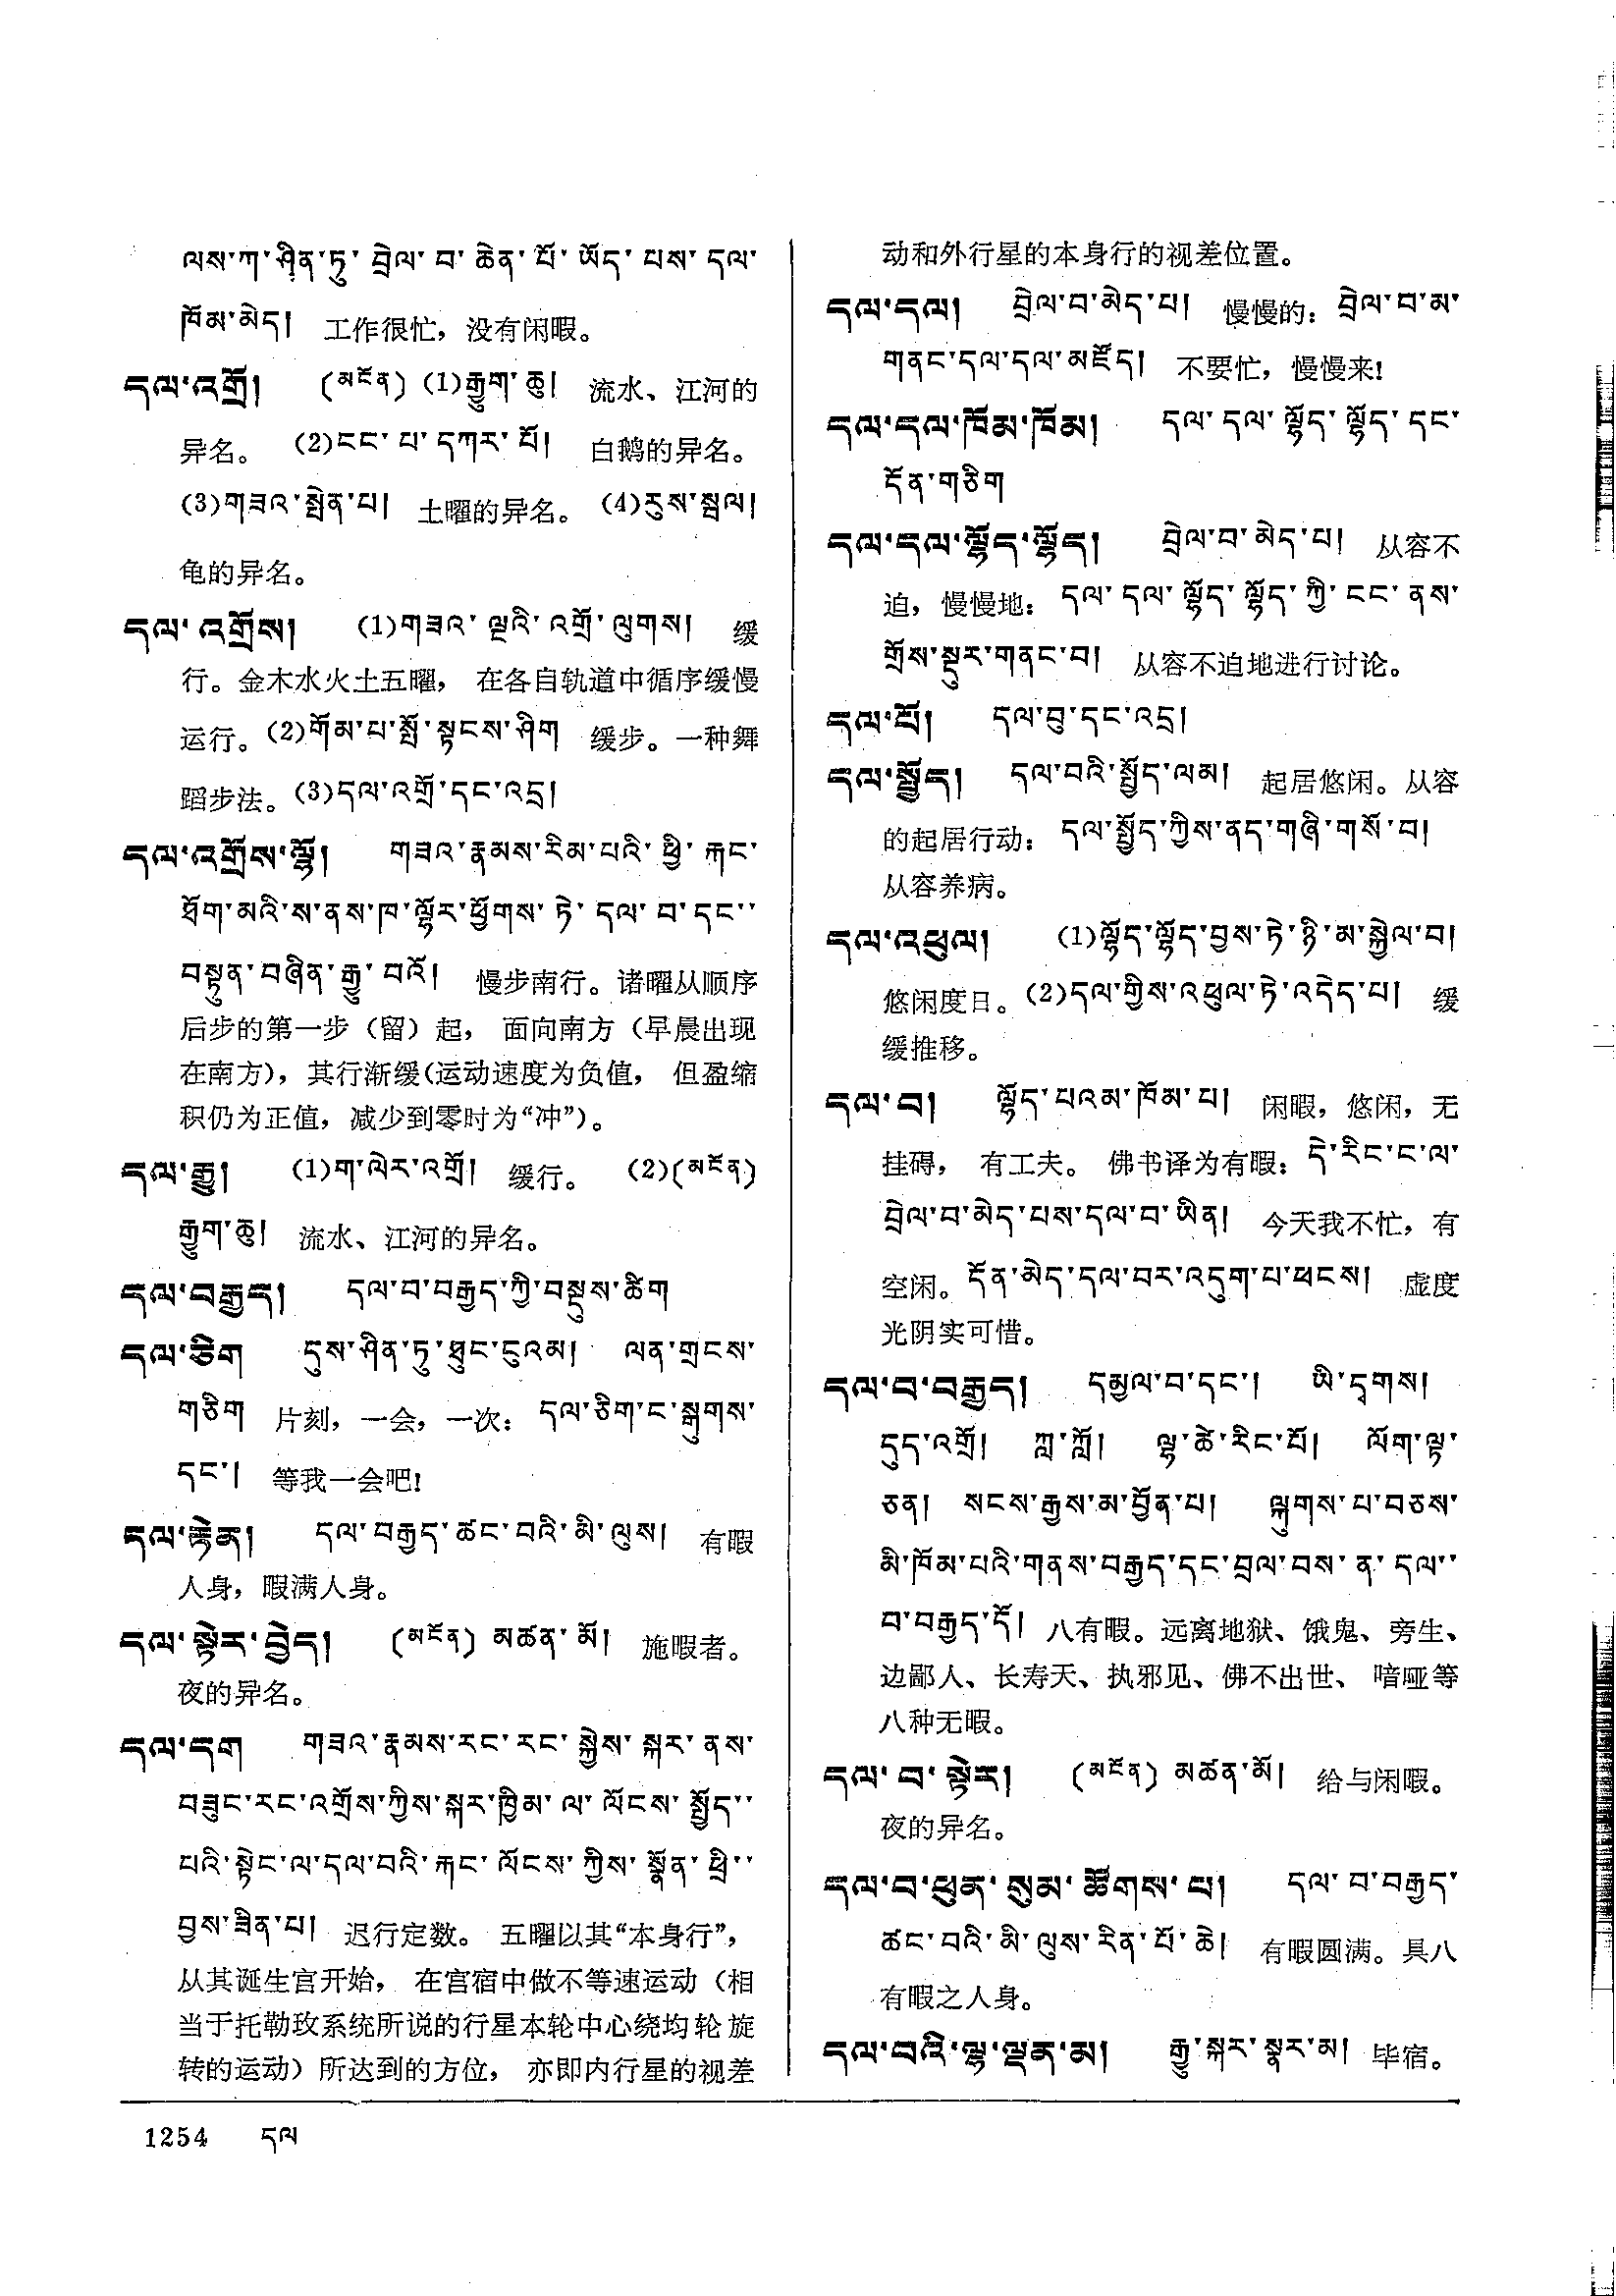 ལས་ཀ་ཤིན་ཏུ་བྲེལ་བ་ཆེན་པོ་ཡོད་པས་དལ་
ཁོམ་མེད། 工作很忙，没有闲暇。
དལ་འགྲོ། (མངོན) (1)རྒྱུག་ཆུ། 流水、江河的
异名。 (2)ངང་པ་དཀར་པོ། 白鹅的异名。
(3)གཟའ་སྤེན་པ། 土曜的异名。 (4)རུས་སྦལ།
龟的异名。
དལ་འགྲོས། (1)གཟའ་ལྔའི་འགྲོ་ལུགས། 缓
行。金木水火土五曜， 在各自轨道中循序缓慢
运行。(2)གོམ་པ་སྤོ་སྟངས་ཤིག 缓步。一种舞
蹈步法。(3)དལ་འགྲོ་དང་འདྲ།
དལ་འགྲོས་ལྷོ། གཟའ་རྣམས་རིམ་པའི་ཕྱི་རྐང་
ཐོག་མའི་ས་ནས་ཁ་ལྷོར་ཕྱོགས་ཏེ་དལ་བ་དང་་
བསྟུན་བཞིན་རྒྱུ་བའོ། 慢步南行。诸曜从顺序
后步的第一步（留）起， 面向南方（早晨出现
在南方），其行渐缓（运动速度为负值， 但盈缩
积仍为正值，减少到零时为“冲”）。
དལ་རྒྱུ། (1)ག་ལེར་འགྲོ། 缓行。 (2)(མངོན)
རྒྱུག་ཆུ། 流水、江河的异名。
དལ་བརྒྱད། དལ་བ་བརྒྱད་ཀྱི་བསྡུས་ཚིག
དལ་ཅིག དུས་ཤིན་ཏུ་ཐུང་ངུའམ། ལན་གྲངས་
གཅིག 片刻，一会，一次：དལ་ཅིག་ང་སྒུགས་
དང་། 等我一会吧！
དལ་རྟེན། དལ་བརྒྱད་ཚང་བའི་མི་ལུས། 有暇
人身，暇满人身。
དལ་སྟེར་བྱེད། (མངོན) མཚན་མོ། 施暇者。
夜的异名。
དལ་དག གཟའ་རྣམས་རང་རང་སྐྱེས་སྐར་ནས་
བཟུང་རང་འགྲོས་ཀྱིས་སྐར་ཁྱིམ་ལ་ལོངས་སྤྱོད་་
པའི་སྟེང་ལ་དལ་བའི་རྐང་ལོངས་ཀྱིས་སྣོན་ཕྲི་་
བྱས་ཟིན་པ། 迟行定数。 五曜以其“本身行”，
从其诞生宫开始， 在宫宿中做不等速运动（相
当于托勒玫系统所说的行星本轮中心绕均轮旋
转的运动）所达到的方位， 亦即内行星的视差
动和外行星的本身行的视差位置。
དལ་དལ། བྲེལ་བ་མེད་པ། 慢慢的：བྲེལ་བ་མ་
གནང་དལ་དལ་མཛོད། 不要忙，慢慢来！
དལ་དལ་ཁོམ་ཁོམ། དལ་དལ་ལྷོད་ལྷོད་དང་
དོན་གཅིག
དལ་དལ་ལྷོད་ལྷོད། བྲེལ་བ་མེད་པ། 从容不
迫，慢慢地：དལ་དལ་ལྷོད་ལྷོད་ཀྱི་ངང་ནས་
གྲོས་སྡུར་གནང་བ། 从容不迫地进行讨论。
དལ་པོ། དལ་བུ་དང་འདྲ།
དལ་སྤྱོད། དལ་བའི་སྤྱོད་ལམ། 起居悠闲。从容
的起居行动：དལ་སྤྱོད་ཀྱིས་ནད་གཞི་གསོ་བ།
从容养病。
དལ་འཕུལ། (1)ལྷོད་ལྷོད་བྱས་ཏེ་ཉི་མ་སྐྱེལ་བ།
悠闲度日。(2)དལ་གྱིས་འཕུལ་ཏེ་འདེད་པ། 缓
缓推移。
དལ་བ། ལྷོད་པའམ་ཁོམ་པ། 闲暇，悠闲，无
挂碍， 有工夫。 佛书译为有暇：དེ་རིང་ང་ལ་
བྲེལ་བ་མེད་པས་དལ་བ་ཡིན། 今天我不忙，有
空闲。དོན་མེད་དལ་བར་འདུག་པ་ཕངས། 虚度
光阴实可惜。
དལ་བ་བརྒྱད། དམྱལ་བ་དང་། ཡི་དྭགས།
དུད་འགྲོ། ཀླ་ཀློ། ལྷ་ཚེ་རིང་པོ། ལོག་ལྟ་
ཅན། སངས་རྒྱས་མ་བྱོན་པ། ལྐུགས་པ་བཅས་
མི་ཁོམ་པའི་གནས་བརྒྱད་དང་བྲལ་བས་ན་དལ་་
བ་བརྒྱད་དོ། 八有暇。远离地狱、饿鬼、旁生、
边鄙人、长寿天、执邪见、佛不出世、 喑哑等
八种无暇。
དལ་བ་སྟེར། (མངོན) མཚན་མོ། 给与闲暇。
夜的异名。
དལ་བ་ཕུན་སུམ་ཚོགས་པ། དལ་བ་བརྒྱད་
ཚང་བའི་མི་ལུས་རིན་པོ་ཆེ། 有暇圆满。具八
有暇之人身。
དལ་བའི་ལྷ་ལྡན་མ། རྒྱུ་སྐར་སྣར་མ། 毕宿。
1254 དལ